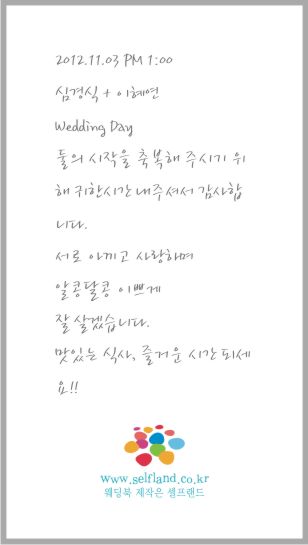 2012.11.03 PM 1:00
심경식 + 이혜연
Wedding Day
둘의 시작을 축복해 주시기 위
해 귀한시간 내주셔서 감사합
니다.
서로 아끼고 사랑하며
알콩달콩 이쁘게
잘 살겠습니다.
맛있는 식사, 즐거운 시간 되세
요!!
www.selfland.co.kr
웨딩북 제작은 셀프랜드